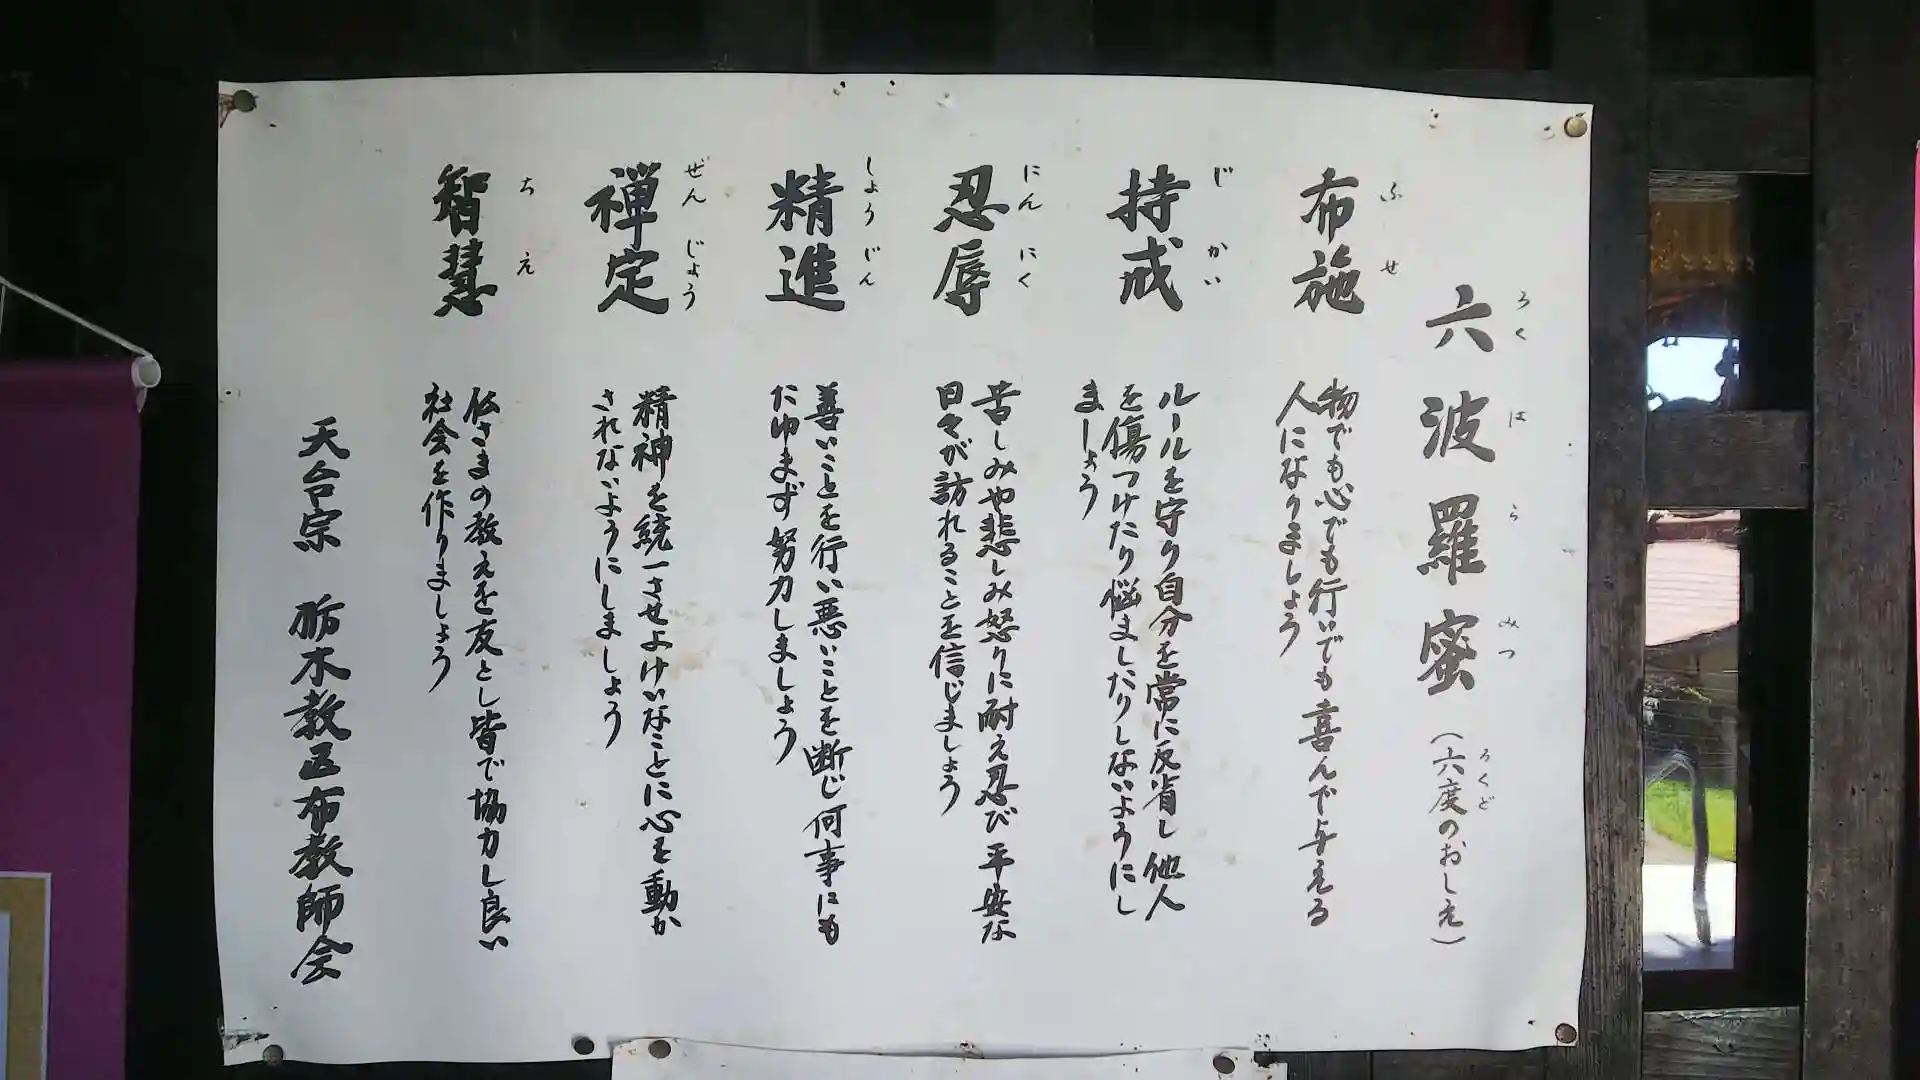 六波羅蜜（六度のおしえ）
ろくはらみつ
ろくど
布施
ふせ
物でも心でも行いでも喜んで与える
人になりましょう
持戒
じかい
ルールを守り自分を常に反省し他人
を傷つけたり悩ましたりしないようにし
ましょう
忍辱
にんにく
苦しみや悲しみ怒りに耐え忍び平安な
日々が訪れることを信じましょう
精進
しょうじん
善いことを行い悪いことを断じ何事にも
たゆまず努力しましょう
禅定
ぜんじょう
精神を統一させよけいなことに心を動か
されないようにしましょう
智慧
ちえ
仏さまの教えを友とし皆で協力し良い
社会を作りましょう
天台宗 栃木教区布教師会